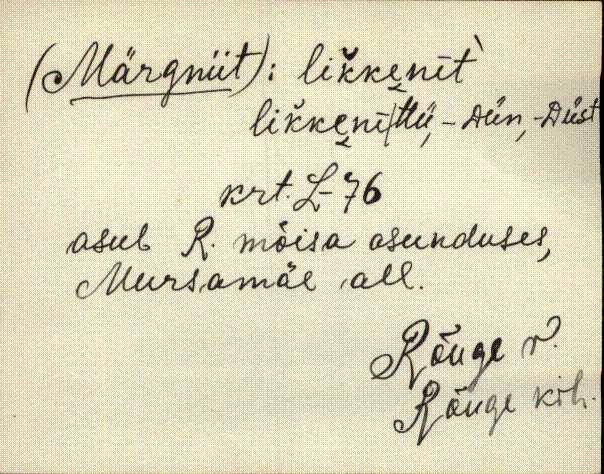 (Märgniit): likkenīt̀
likkenī|ttü, -Dün, -Düst
krt. L-76
asub R. mõisa asunduses,
Mursamäe all.
Rõuge v.
Rõuge kih.